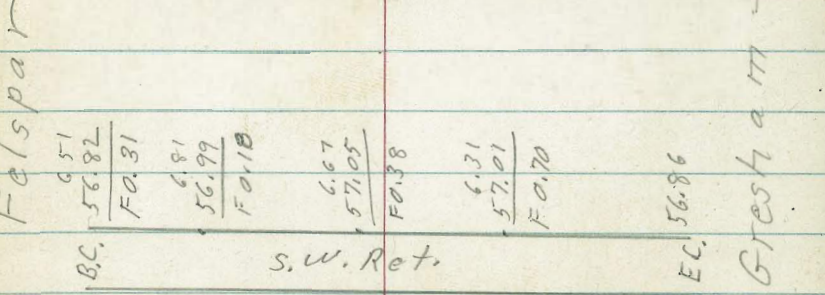 Felspar
B.C.
6.51
56.82
F0.31
6.81
56.99
F0.18
6.67
57.05
F0.38
6.31
57.01
F0.70
E.C. 56.86
Gresham -
S.W. Ret.